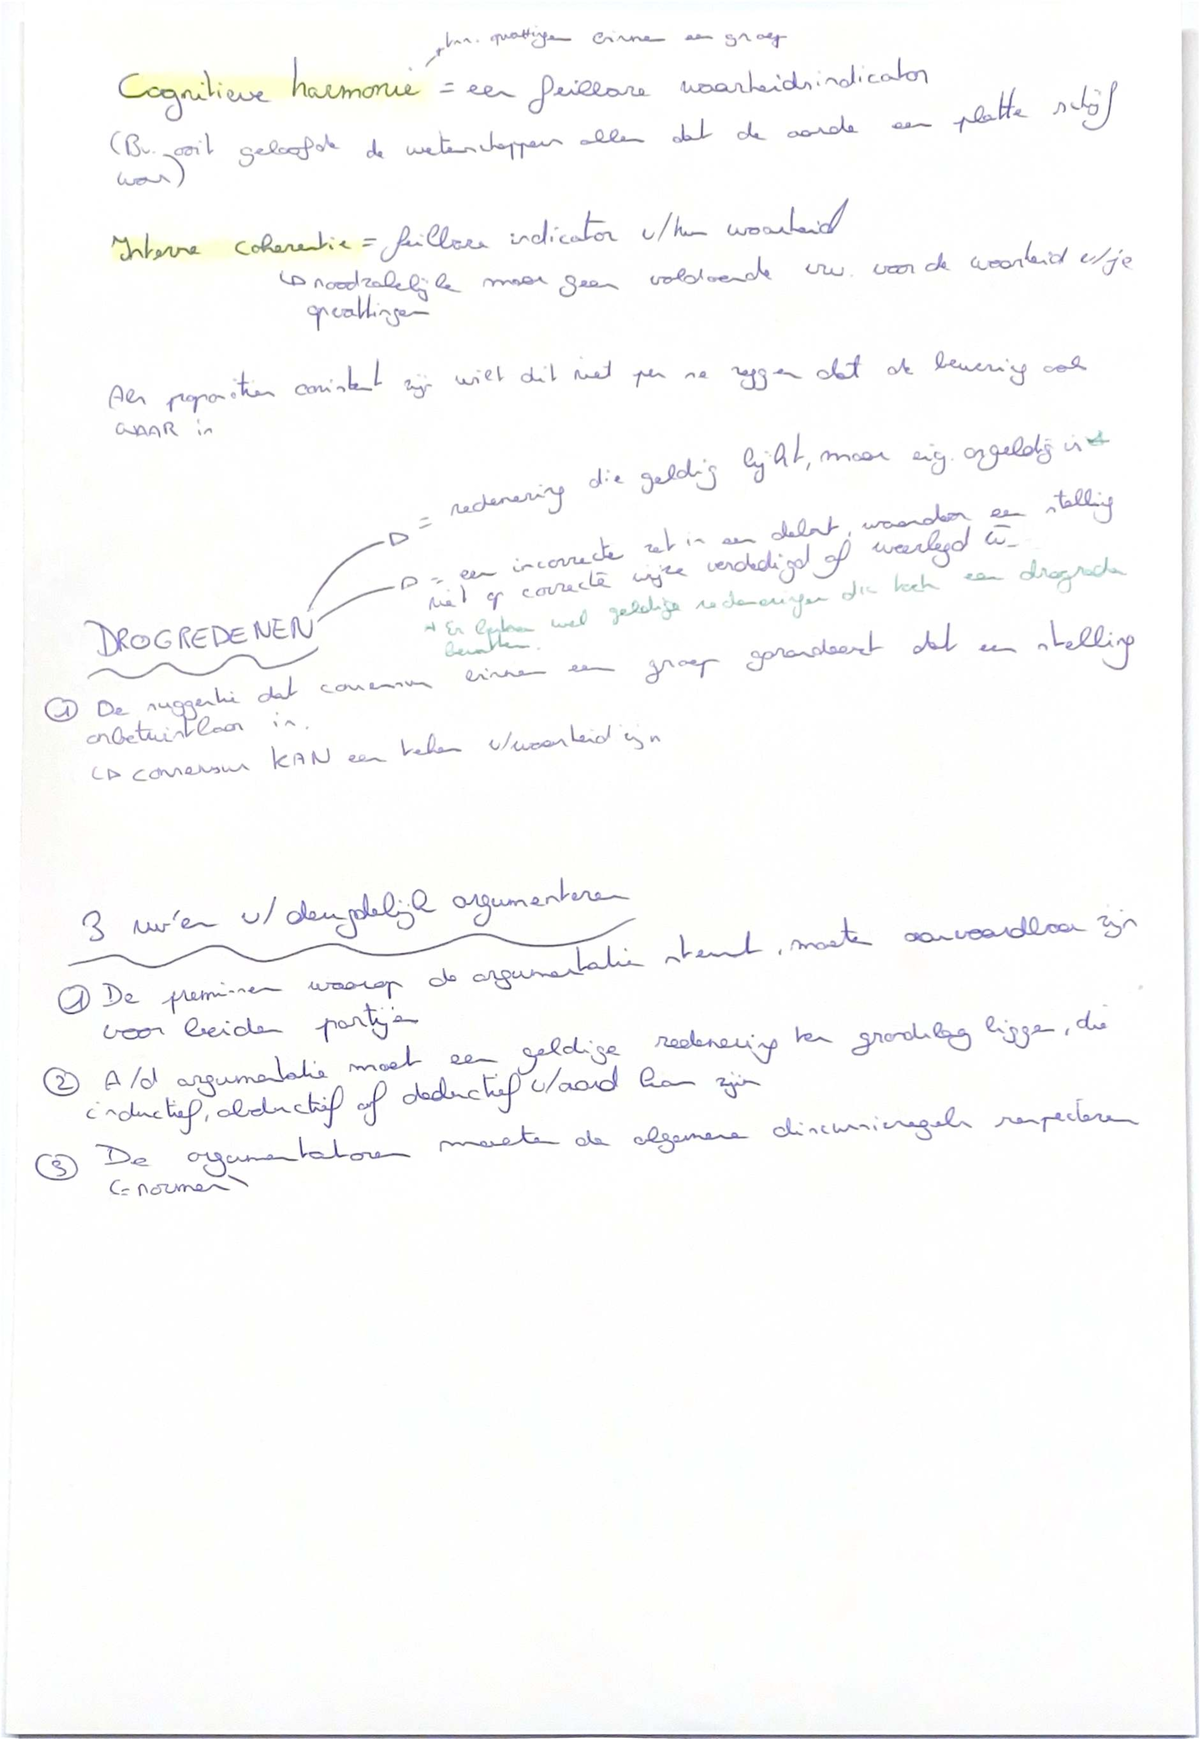 tss. opvattingen binnen een groep
Cognitieve harmonie = een feilbare waarheidsindicator
(Bv. ooit geloofde de wetenschappers allen dat de aarde een platte schijf
was)
Interne coherentie = feilbare indicator v/hun waarheid
↳ noodzakelijke maar geen voldoende vrw. voor de waarheid v/je
opvattingen
Als proposities consistent zijn wilt dit niet per se zeggen dat de bewering ook
WAAR is
= redenering die geldig lijkt, maar eig. ongeldig is
= een incorrecte zet in een debat, waardoor een stelling
niet op correcte wijze verdedigd of weerlegd w
* Er bestaan wel geldige redeneringen die toch een drogreden
bevatten.
DROGREDENEN
① De suggestie dat consensus binnen een groep garandeert dat een stelling
onbetwistbaar is.
↳ consensus KAN een teken v/waarheid zijn
3 vw'en v/ deugdelijk argumenteren
① De premissen waarop de argumentatie steunt, moeten aanvaardbaar zijn
voor beiden partijen
② A/d argumentatie moet een geldige redenering ten grondslag liggen, die
inductief, abductief of deductief v/aard kan zijn
③ De argumentatoren moeten de algemene discussieregels respecteren
(= normen)